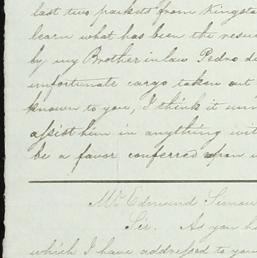 last two packets from Kingsto
learn what has been the resu
by my Brother in law Pedro di
unfortunate cargo taken out
known to you, I think it unn
assist him in anything wit
be a favor conferred upon
Mr Edmund Simon
Sir. As you ha
which I have addressed to you